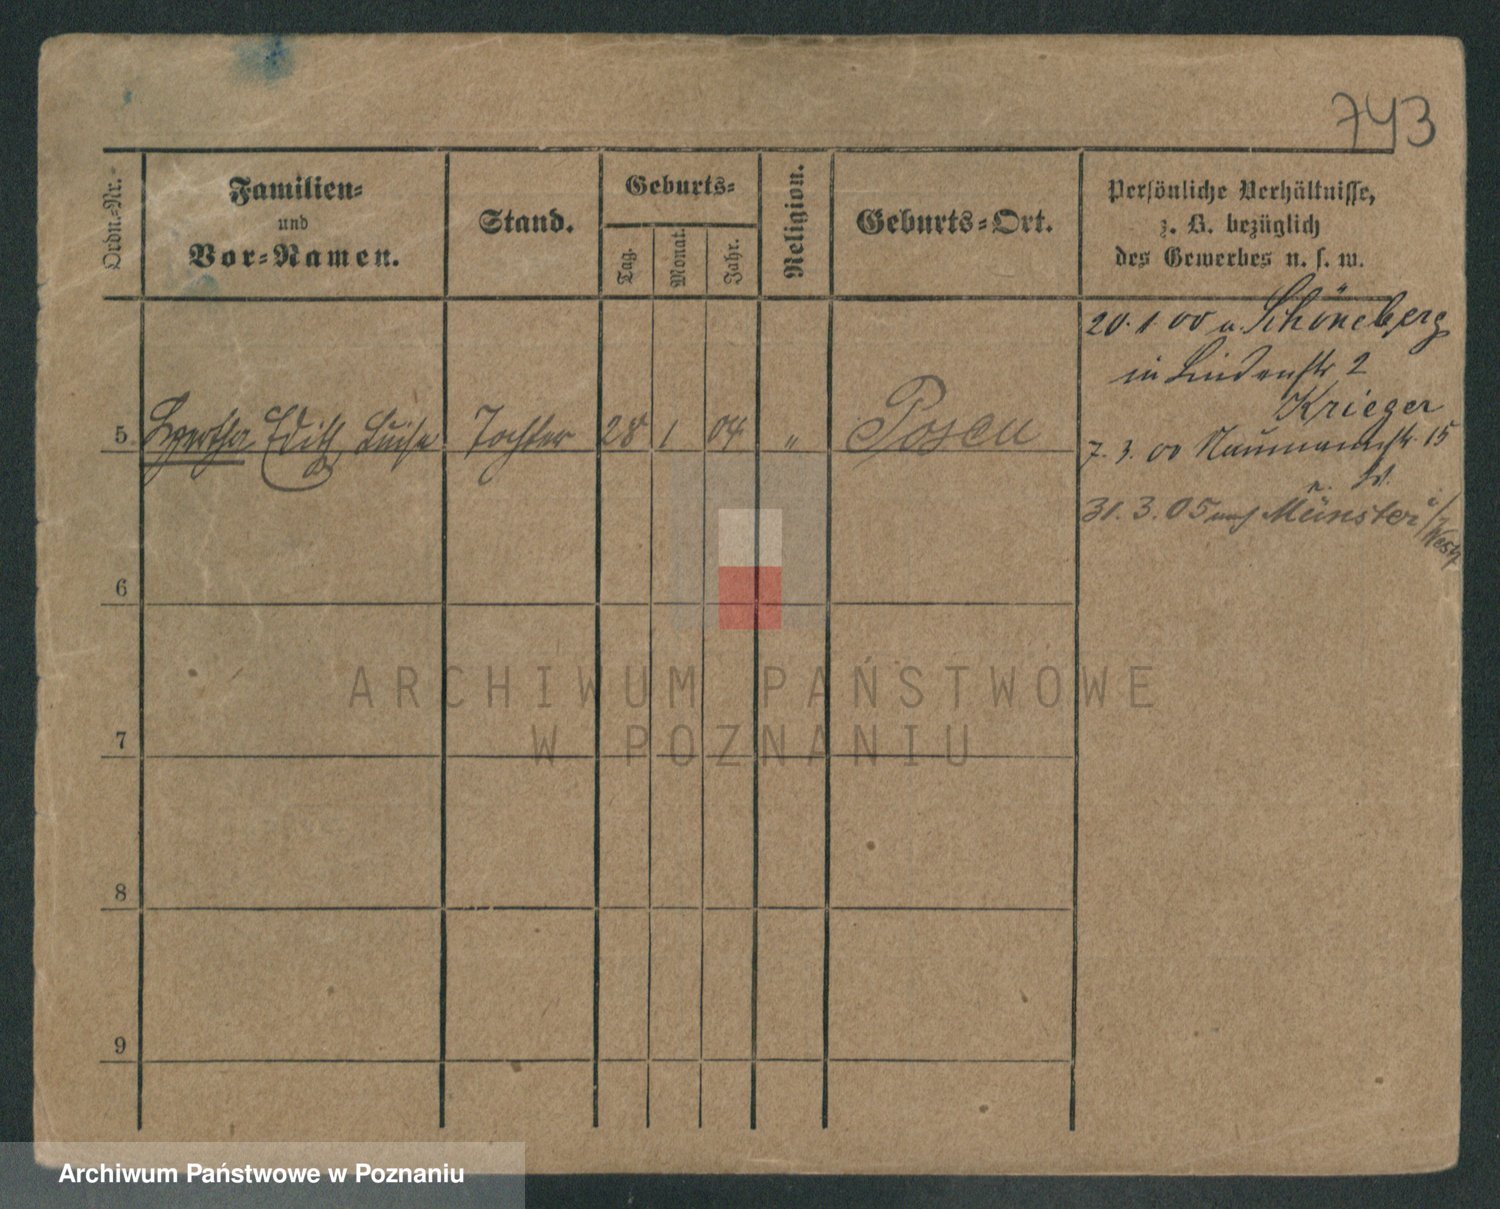 743
Ordn.-Nr.
Familien-
und
Vor-Namen.
Stand.
Geburts-
Tag.
Monat.
Jahr.
Religion.
Geburts-Ort.
Persönliche Verhältnisse,
z. B. bezüglich
des Gewerbes u. s. w.
20. 1. 00 n. Schöneberg
in Lindenstr 2
Krieger
5 Hertha Edith Luise Tochter 28 1 04 " Posen
7. 3. 00 Naumannstr. 15
31. 3. 05 nach Münster i/
Westf
6
7
8
9
ARCHIWUM PAŃSTWOWE
W POZNANIU
Archiwum Państwowe w Poznaniu